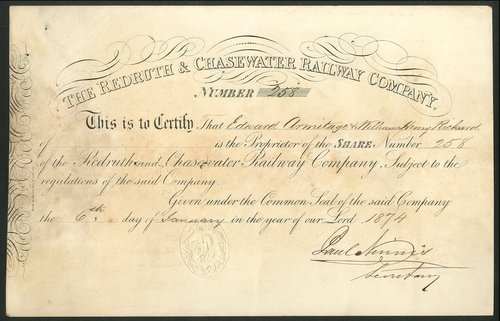 THE REDRUTH & CHASEWATER RAILWAY COMPANY.
NUMBER 258
This is to Certify, That Edward Armitage & William Henry Rickard
of is the Proprietor of the SHARE Number 258
of the Redruth and Chasewater Railway Company, Subject to the
regulations of the said Company.
Given under the Common Seal of the said Company
the 6th day of January in the year of our Lord 1874
Paul Ninnis
Secretary